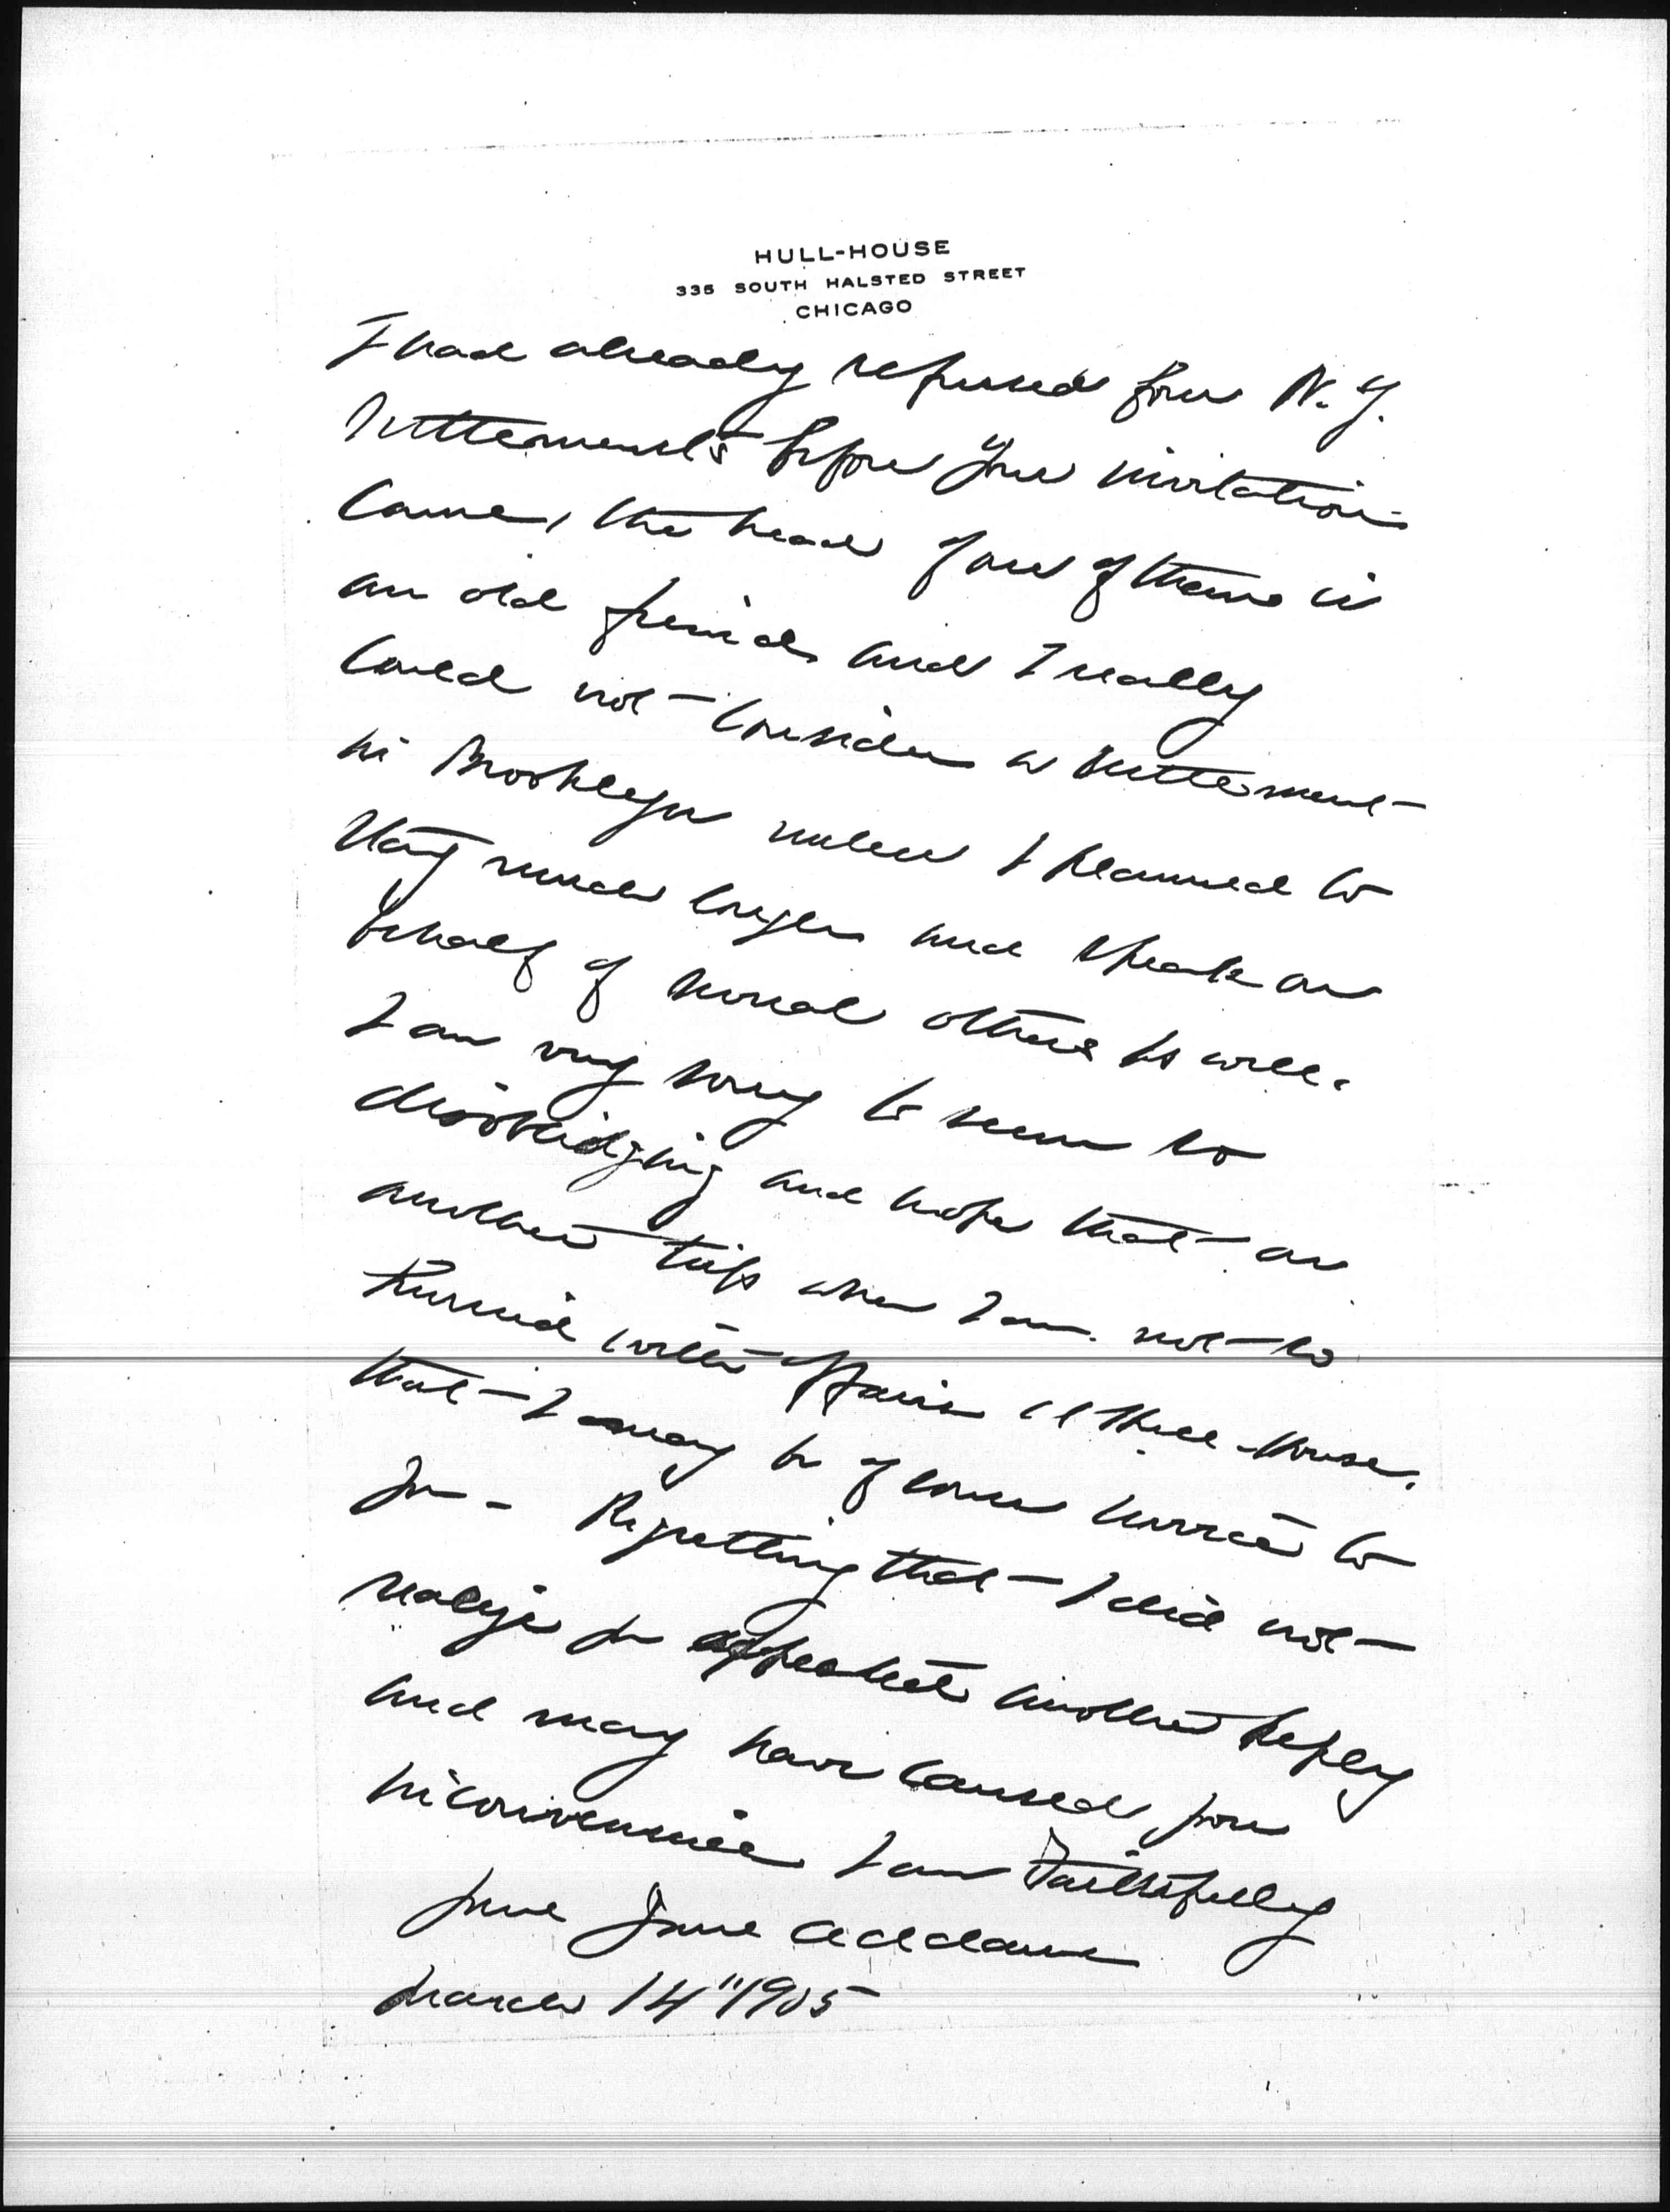 HULL-HOUSE
335 SOUTH HALSTED STREET
CHICAGO
I had already refused four N.Y.
settlements before your invitation
came, the head of one of them is
an old friend and I really
could not consider a settlement
in Brooklyn unless I planned to
stay much longer and speak on
behalf of several others as well.
I am very sorry to seem so
disobliging and hope that on
another trip when I am not so
hurried with affairs at Hull-House,
that I may be of some service to
you - Regretting that I did not
realize you expected another reply
and may have caused you
inconvenience I am Faithfully
yours Jane Addams
March 14" 1905